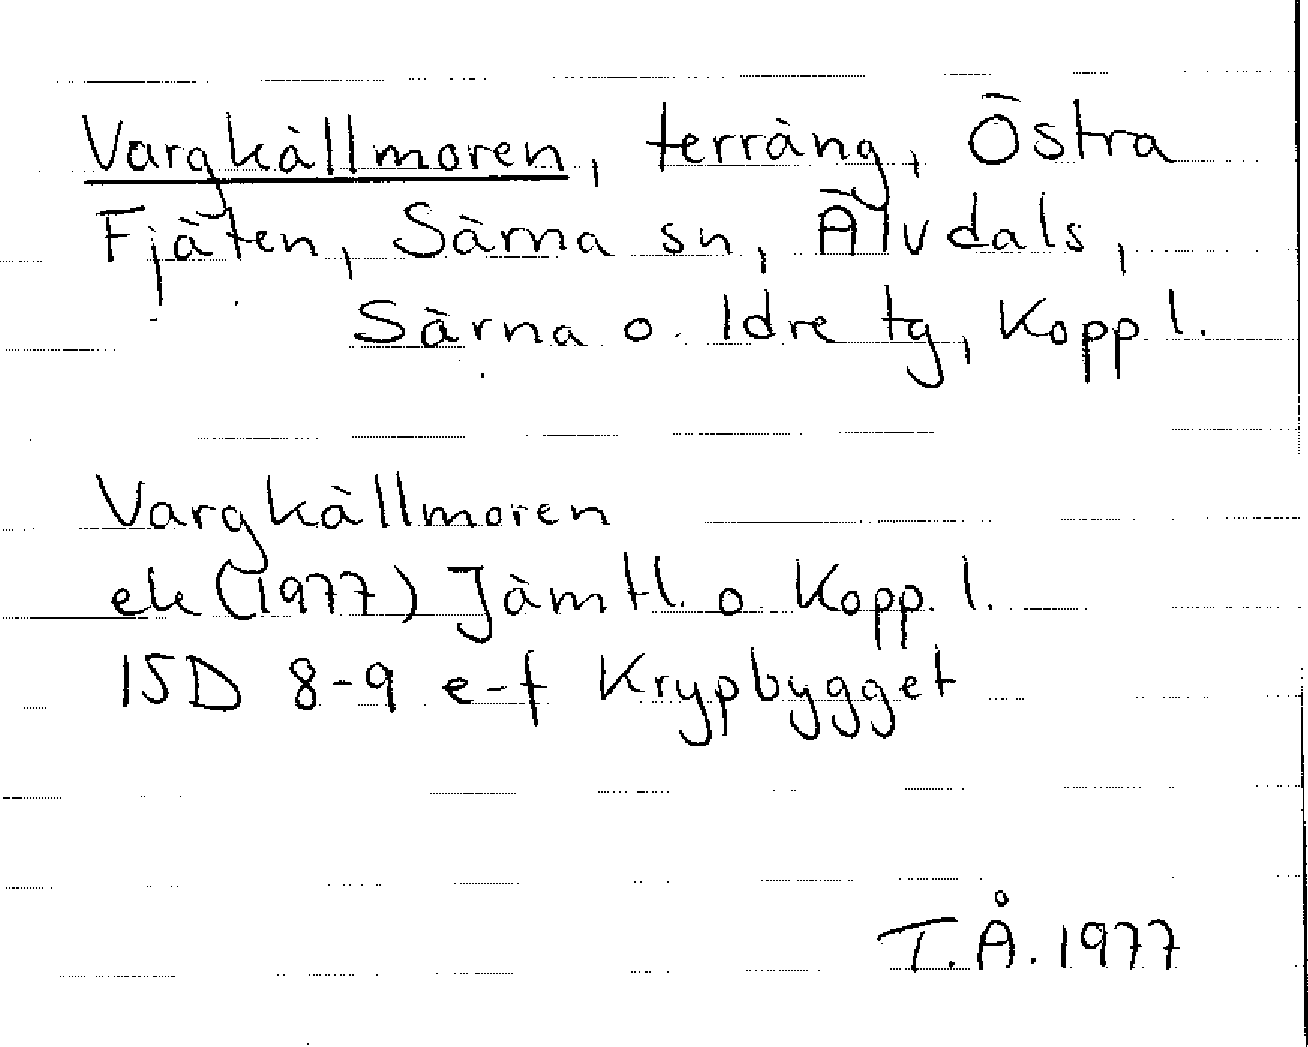 Vargkällmoren, terräng, Östra
Fjäten, Särna sn, Älvdals,
Särna o. Idre tg, Kopp l.
Vargkällmoren
ek (1977) Jämtl. o Kopp. l.
15D 8-9 e-f Krypbygget
T.Å. 1977